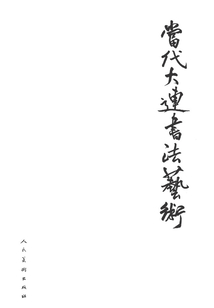 當代大連書法藝術
人民美術出版社